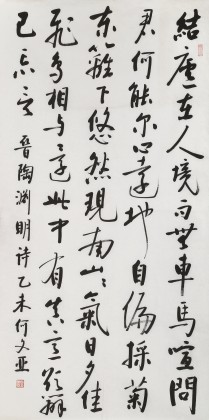 結廬在人境而無車馬喧問
君何能尔心遠地自偏採菊
東籬下悠然現南山山氣日夕佳
飛鳥相与還此中有真意欲辨
已忘言 晉陶渊明詩乙未何文亚